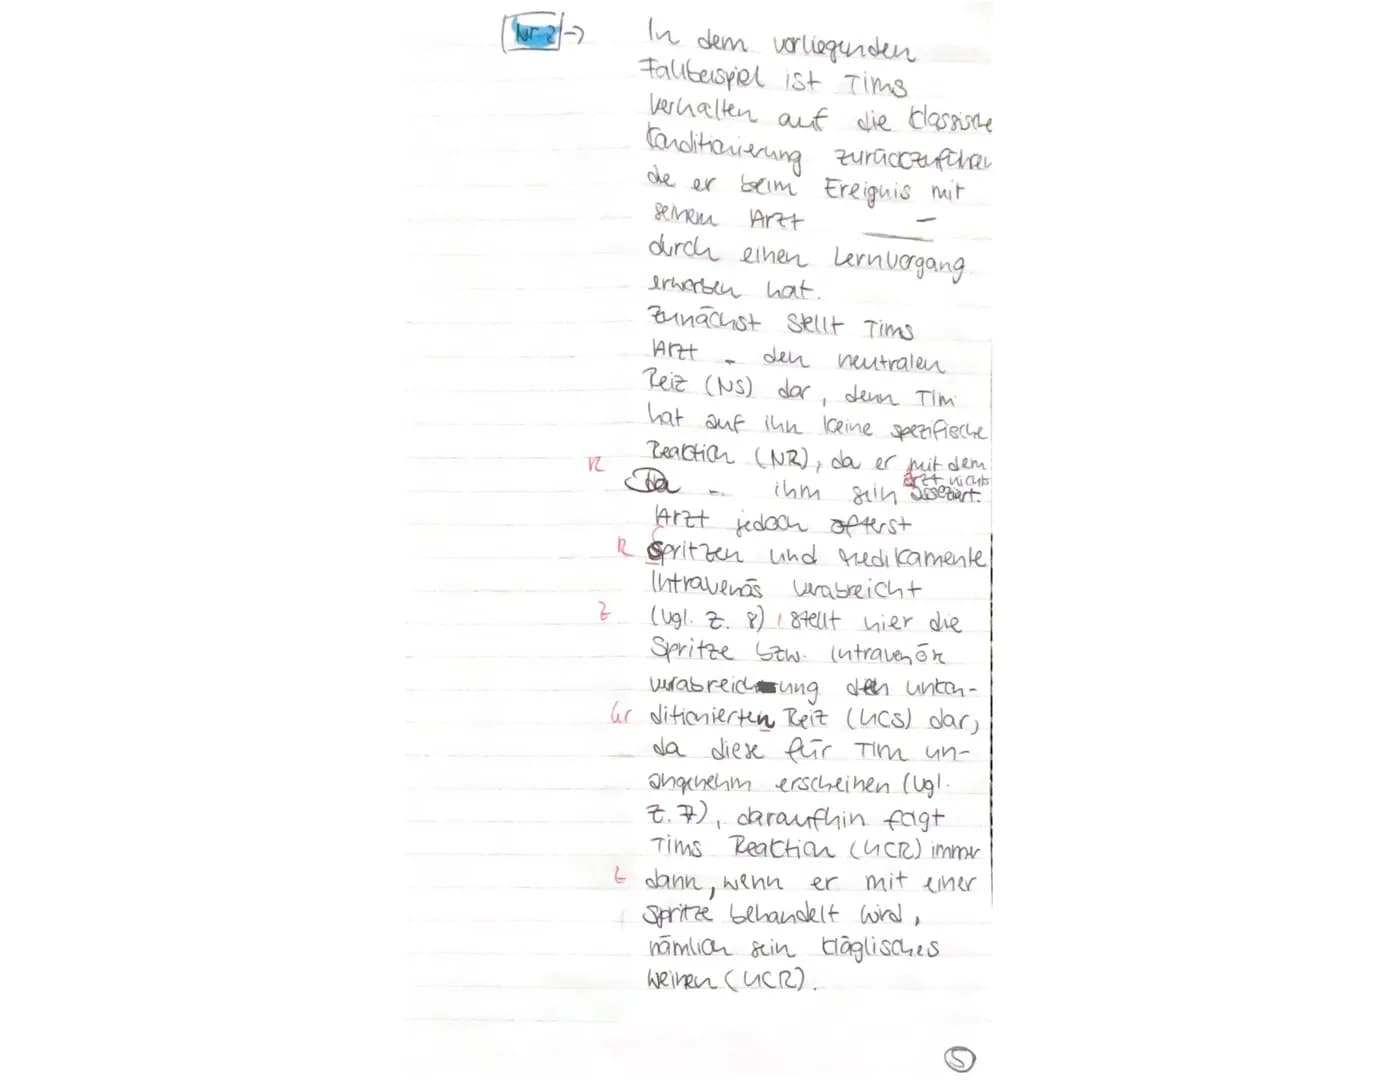 Nr 2 →
In dem vorliegenden
Fallbeispiel ist Tims
Verhalten auf die klassische
Konditionierung zurückzuführen
die er beim Ereignis mit
seinem Arzt
durch einen Lernvorgang
erworben hat.
Zunächst stellt Tims
Arzt den neutralen
Reiz (NS) dar, denn Tim
hat auf ihn keine spezifische
Reaktion (NR), da er mit dem
Arzt nicht
R Da ihm sein assoziiert.
Arzt jedoch öfterst
R Spritzen und Medikamente
Intravenös verabreicht
Z (vgl. Z. 8), stellt hier die
Spritze bzw. Intravenör
verabreichung den unkon-
Gr ditionierten Reiz (UCS) dar,
da diese für Tim un-
angenehm erscheinen (vgl.
Z. 7), daraufhin fogt
Tims Reaktion (UCR) immer
Z dann, wenn er mit einer
Spritze behandelt wird,
nämlich sein kläglisches
Weinen (UCR).
5